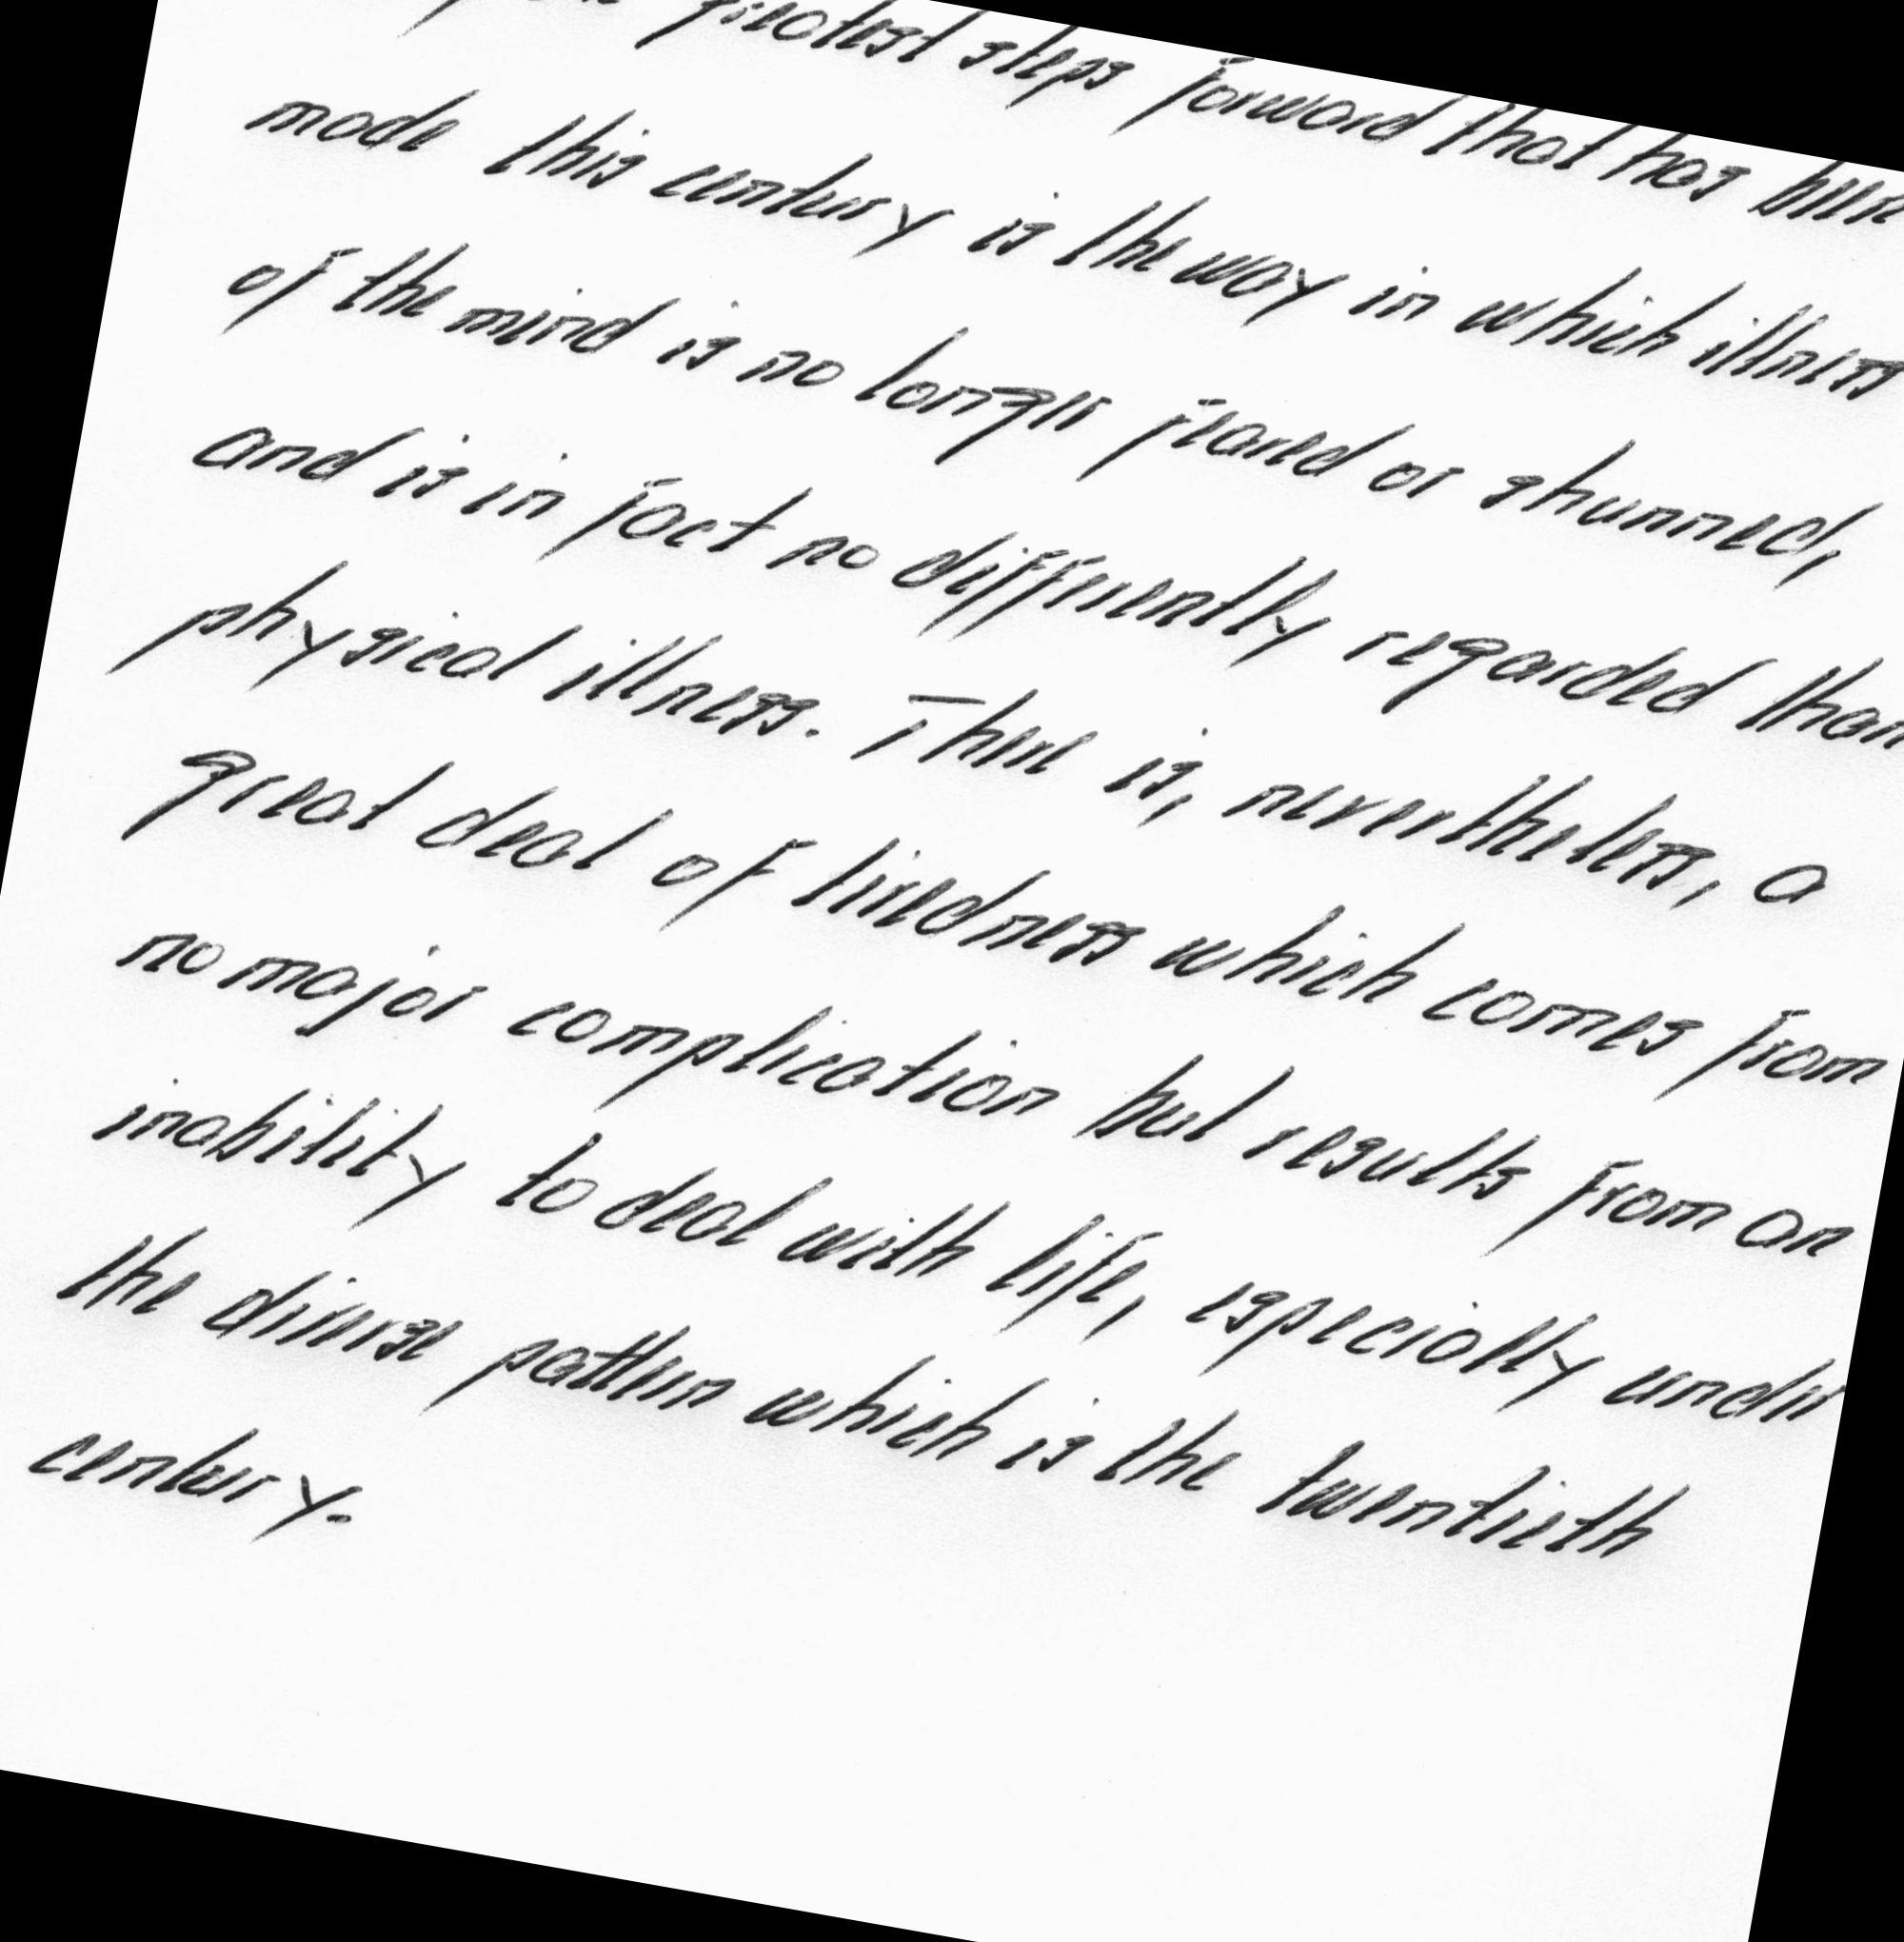 greatest steps forward that has been
made this century is the way in which illness
of the mind is no longer feared or shunned,
and is in fact no differently regarded than
physical illness. There is, nevertheless, a
great deal of tiredness which comes from
no major complication but results from an
inability to deal with life, especially under
the diverse pattern which is the twentieth
century.